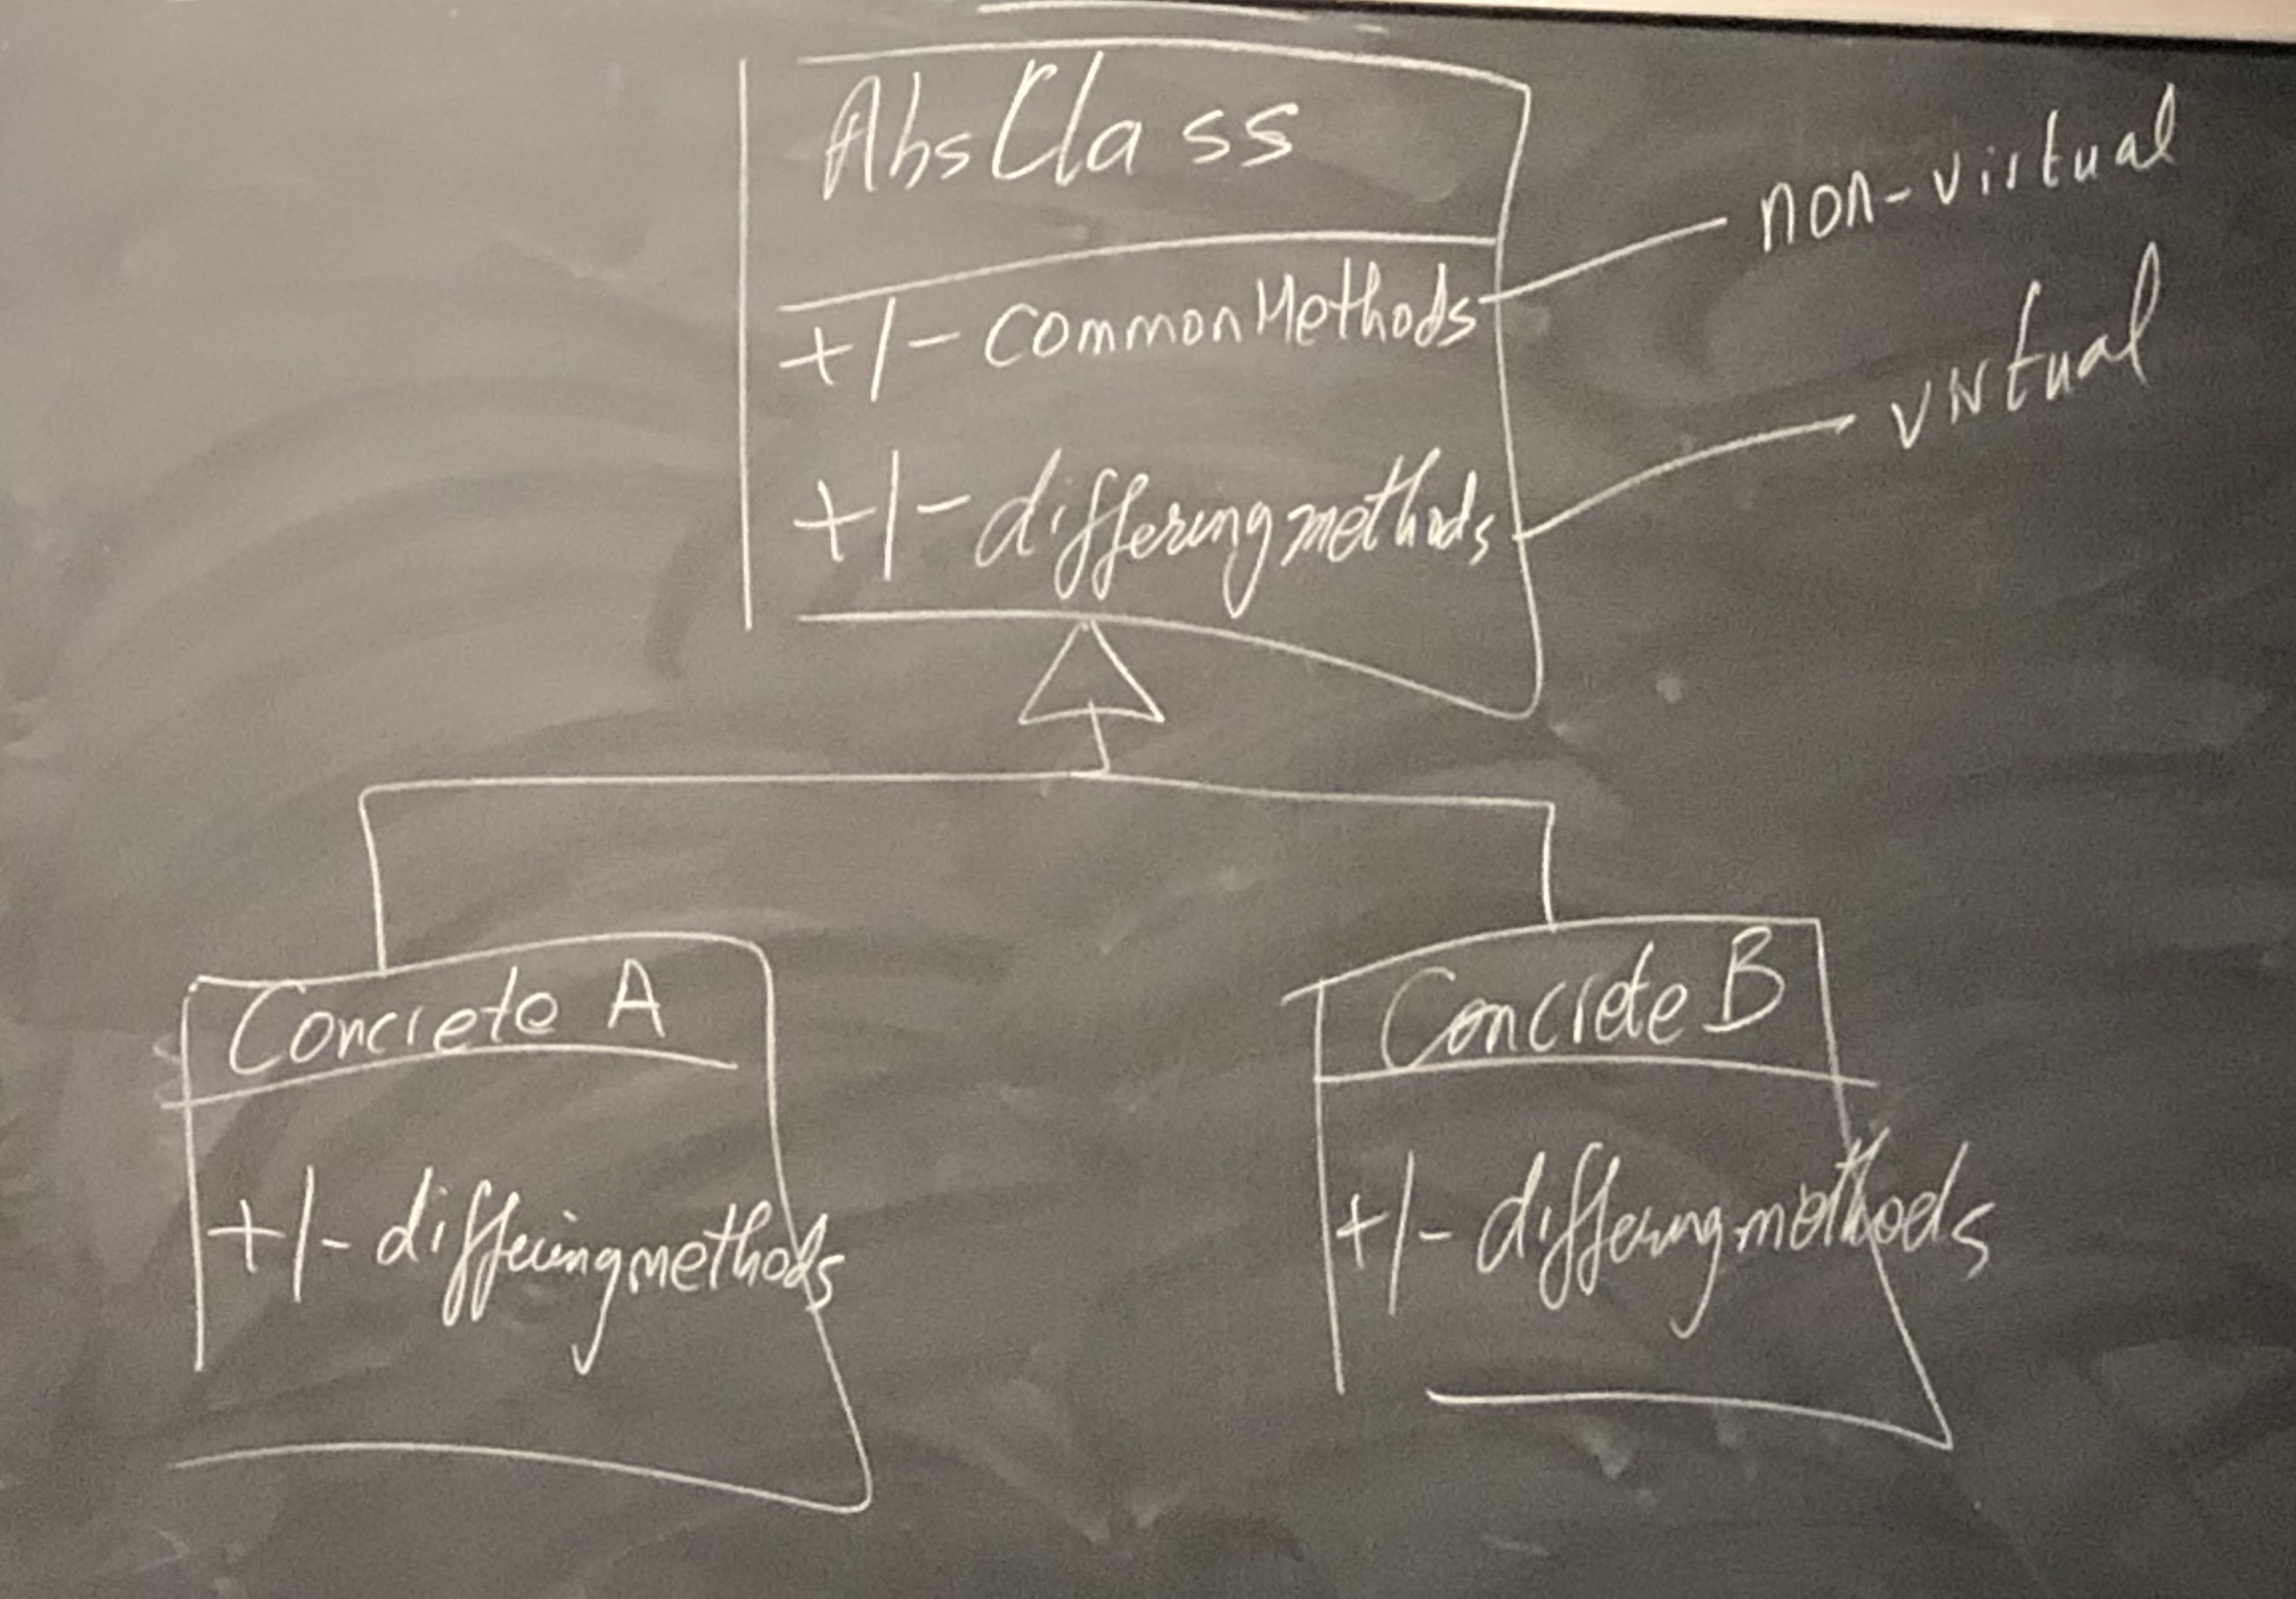 AbsClass
+/- commonMethods
non-virtual
+/- differingmethods
virtual
Concrete A
+/- differingmethods
Concrete B
+/- differingmethods